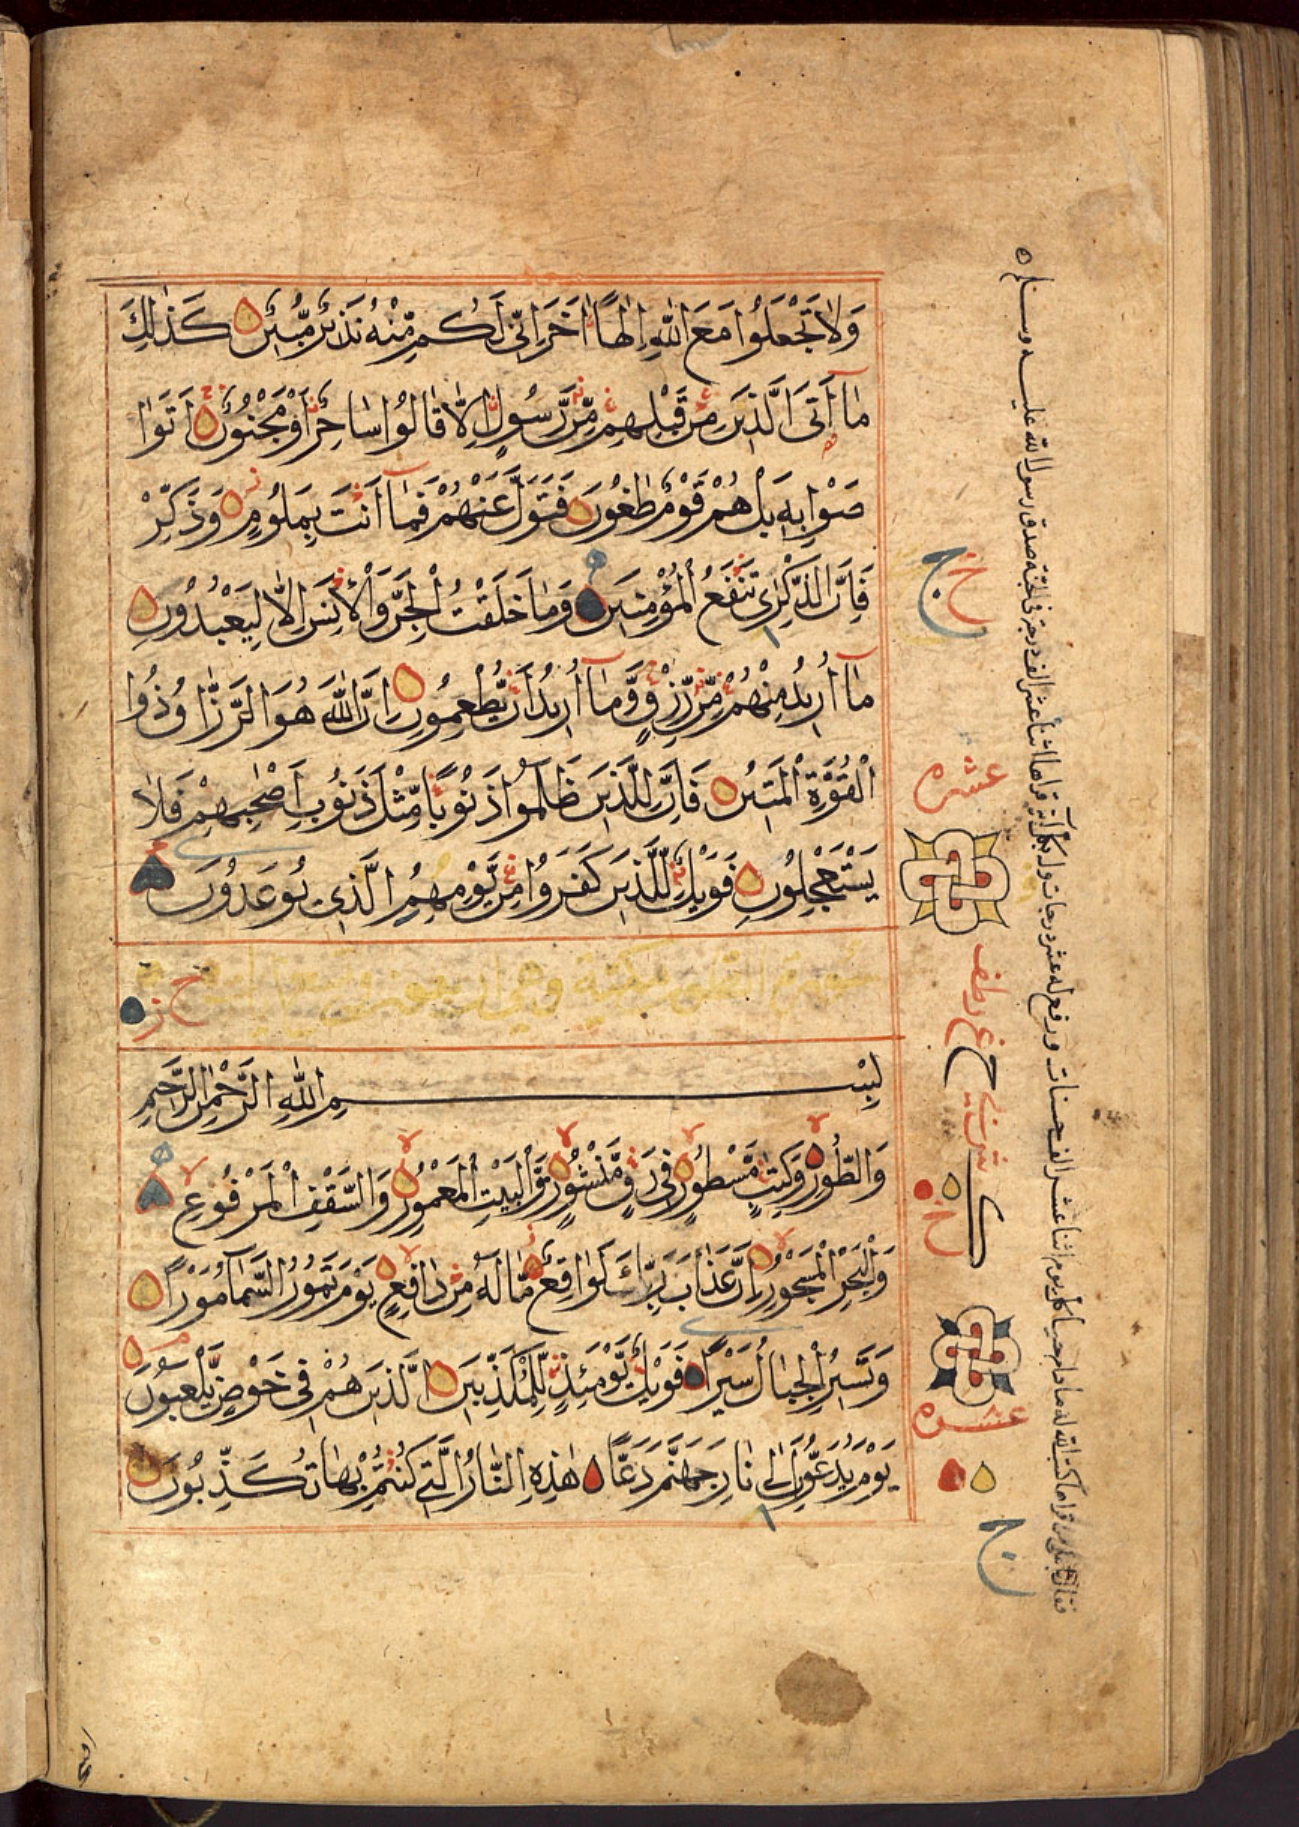 وَلَا تَجْعَلُوا مَعَ اللّٰهِ اِلٰهًا اٰخَرَ اِنّٖي لَكُم مِّنْهُ نَذٖيرٌ مُّبٖينٌ كَذٰلِكَ
مَآ اَتَى الَّذٖينَ مِنْ قَبْلِهِم مِّن رَّسُولٍ اِلَّا قَالُوا سَاحِرٌ اَوْ مَجْنُونٌ اَتَوَا
صَوْا بِهٖ بَلْ هُمْ قَوْمٌ طَاغُونَ فَتَوَلَّ عَنْهُمْ فَمَآ اَنْتَ بِمَلُومٍ وَذَكِّرْ
فَاِنَّ الذِّكْرٰى تَنْفَعُ الْمُؤْمِنٖينَ وَمَا خَلَقْتُ الْجِنَّ وَالْاِنْسَ اِلَّا لِيَعْبُدُونِ
مَآ اُرٖيدُ مِنْهُمْ مِّن رِّزْقٍ وَّمَآ اُرٖيدُ اَنْ يُّطْعِمُونِ اِنَّ اللّٰهَ هُوَ الرَّزَّاقُ ذُوا
الْقُوَّةِ الْمَتٖينُ فَاِنَّ لِلَّذٖينَ ظَلَمُوا ذَنُوبًا مِّثْلَ ذَنُوبِ اَصْحٰبِهِمْ فَلَا
يَسْتَعْجِلُونِ فَوَيْلٌ لِّلَّذٖينَ كَفَرُوا مِنْ يَّوْمِهِمُ الَّذٖي يُوعَدُونَ
سورة الطور مكية وهي اربعون وتسع اية
بِسْمِ اللّٰهِ الرَّحْمٰنِ الرَّحٖيمِ
وَالطُّورِ وَكِتٰبٍ مَّسْطُورٍ فٖي رَقٍّ مَّنْشُورٍ وَّالْبَيْتِ الْمَعْمُورِ وَالسَّقْفِ الْمَرْفُوعِ
وَالْبَحْرِ الْمَسْجُورِ اِنَّ عَذَابَ رَبِّكَ لَوَاقِعٌ مَّا لَهٗ مِنْ دَافِعٍ يَوْمَ تَمُورُ السَّمَآءُ مَوْرًا
وَتَسٖيرُ الْجِبَالُ سَيْرًا فَوَيْلٌ يَّوْمَئِذٍ لِّلْمُكَذِّبٖينَ الَّذٖينَ هُمْ فٖي خَوْضٍ يَّلْعَبُونَ
يَوْمَ يُدَعُّونَ اِلٰى نَارِ جَهَنَّمَ دَعًّا هٰذِهِ النَّارُ الَّتٖي كُنْتُمْ بِهَا تُكَذِّبُونَ
ج ح
عشره
ح
ك
ح
عشره
ج
ما دام حيا كل يوم اثنا عشر الف حسنات ورفع له عشر درجات وله بكل آية قراها اثنا عشر الف درجة في الجنة صدق رسول الله عليه وسلم